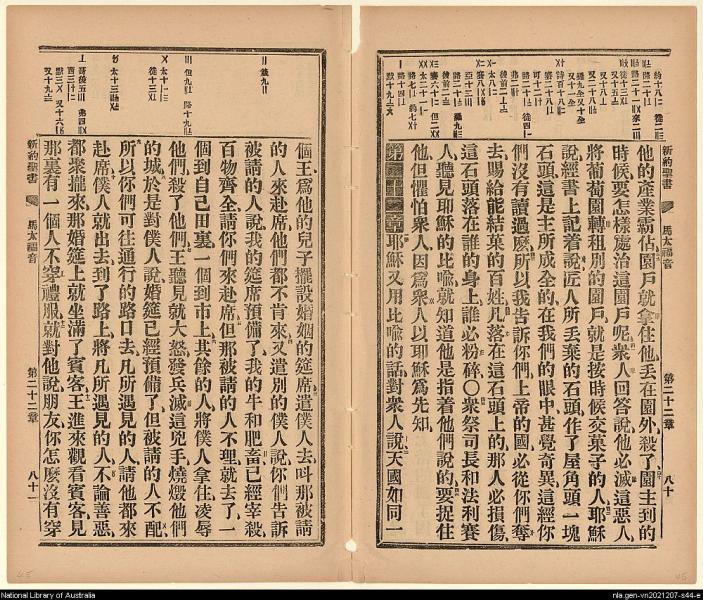 新約聖書
馬太福音
第二十二章
八十
他的產業霸佔園戶就拿住他丢在園外殺了園主到的
時候要怎樣處治這園戶呢衆人回答說他必滅這惡人
將葡萄園轉租別的園戶就是按時候交菓子的人耶穌
說經書上記着說匠人所丢棄的石頭作了屋角頭一塊
石頭這是主所成全的在我們的眼中甚覺奇異這經你
們沒有讀過麽所以我告訴你們上帝的國必從你們奪
去賜給能結菓的百姓凡落在這石頭上的那人必損傷
這石頭落在誰的身上誰必粉碎〇衆祭司長和法利賽
人聽見耶穌的比喻就知道他是指着他們說的要捉住
他但懼怕衆人因爲衆人以耶穌爲先知
第二十二章耶穌又用比喻的話對衆人說天國如同一
個王爲他的兒子擺設婚姻的筵席遣僕人去叫那被請
的人來赴席他們都不肯來又遣別的僕人說你們告訴
被請的人說我的筵席預備了我的牛和肥畜已經宰殺
百物齊全請你們來赴席但那被請的人不理就去了一
個到自己田裏一個到市上其餘的人將僕人拿住凌辱
他們殺了他們王聽見就大怒發兵滅這兇手燒燬他們
的城於是對僕人說婚筵已經預備了但被請的人不配
所以你們可往通行的路口去凡所遇見的人請他都來
赴席僕人就出去到了路上將凡所遇見的人不論善惡
都聚攏來那婚筵上就坐滿了賓客王進來觀看賓客見
那裏有一個人不穿禮服就對他說朋友你怎麽沒有穿
新約聖書
馬太福音
第二十二章
八十一
National Library of Australia
nla.gen-vn2021207-s44-e